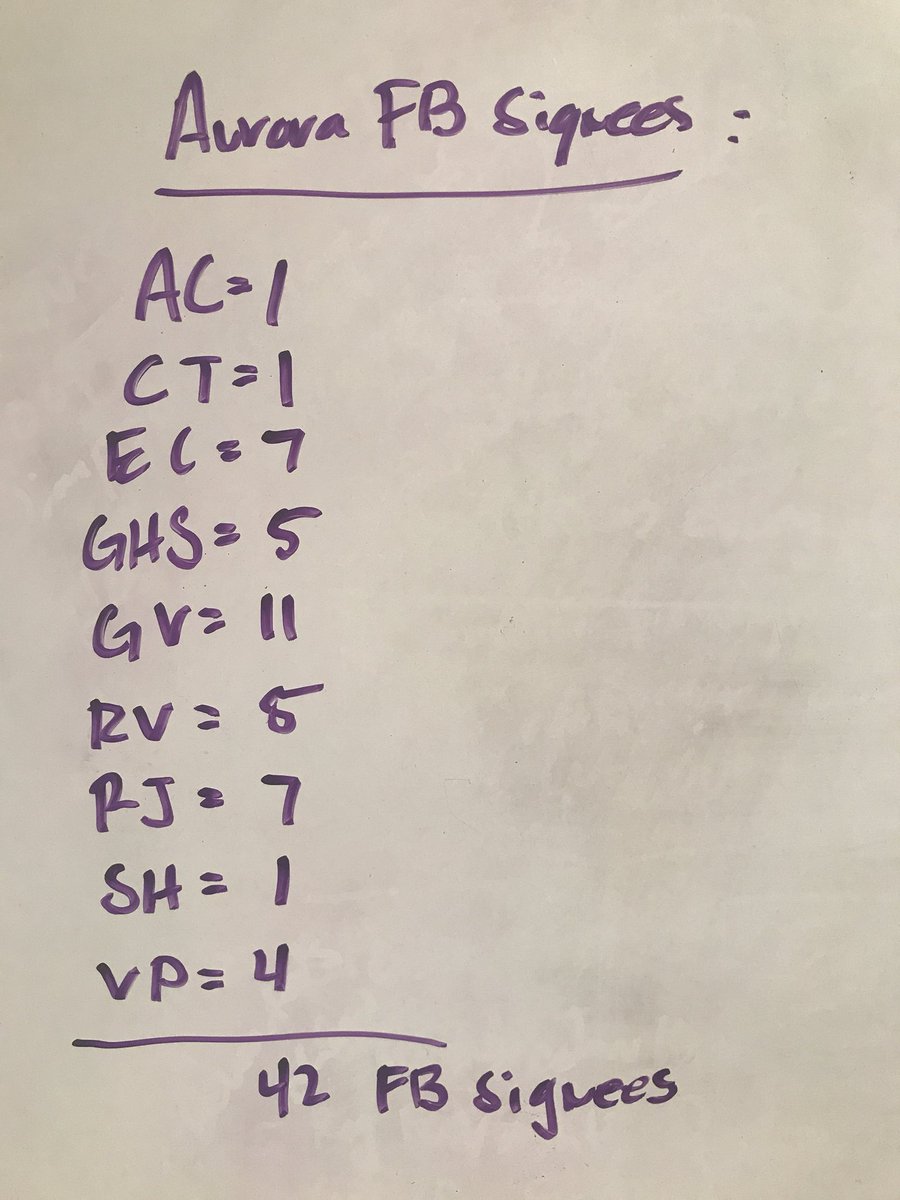 Aurora FB Signees :
AC = 1
CT = 1
EC = 7
GHS = 5
GV = 11
RV = 5
RJ = 7
SH = 1
VP = 4
42 FB Signees